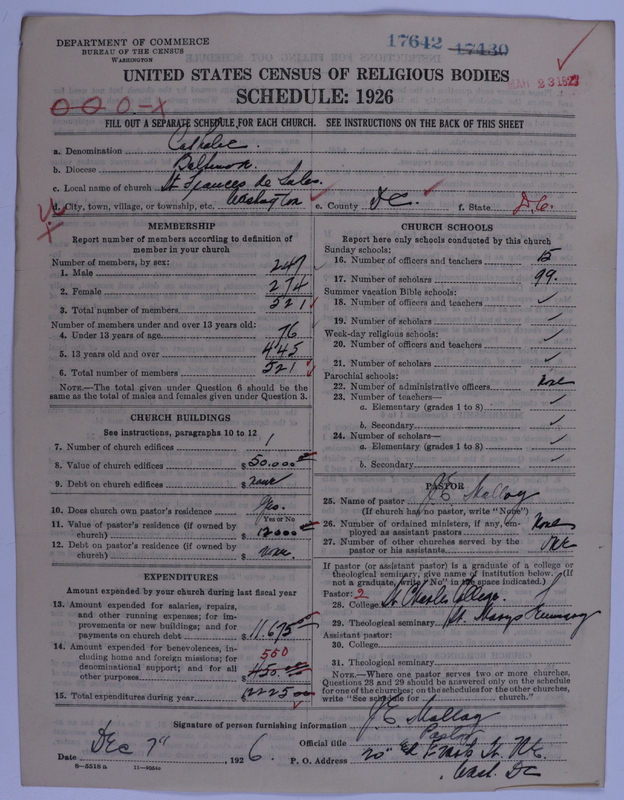 DEPARTMENT OF COMMERCE
BUREAU OF THE CENSUS
WASHINGTON
17642 17430
UNITED STATES CENSUS OF RELIGIOUS BODIES
SCHEDULE: 1926
FILL OUT A SEPARATE SCHEDULE FOR EACH CHURCH. SEE INSTRUCTIONS ON THE BACK OF THIS SHEET
a. Denomination Catholic
b. Diocese
c. Local name of church St Frances de Sales
d. City, town, village, or township, etc. Washington e. County DC f. State D.C.
MEMBERSHIP
Report number of members according to definition of member in your church
Number of members, by sex:
1. Male 247
2. Female 274
3. Total number of members 521
Number of members under and over 13 years old:
4. Under 13 years of age 76
5. 13 years old and over 445
6. Total number of members 521
NOTE.—The total given under Question 6 should be the same as the total of males and females given under Question 3.
CHURCH BUILDINGS
See instructions, paragraphs 10 to 12
7. Number of church edifices 1
8. Value of church edifices $50.000
9. Debt on church edifices $ none
10. Does church own pastor's residence? Yes.
Yes or No
11. Value of pastor's residence (if owned by church) $12000
12. Debt on pastor's residence (if owned by church) $ none.
EXPENDITURES
Amount expended by your church during last fiscal year
13. Amount expended for salaries, repairs, and other running expenses; for improvements or new buildings; and for payments on church debt $11.675
14. Amount expended for benevolences, including home and foreign missions; for denominational support; and for all other purposes 550 $450.00
15. Total expenditures during year $12225
CHURCH SCHOOLS
Report here only schools conducted by this church
Sunday schools:
16. Number of officers and teachers 15
17. Number of scholars 99
Summer vacation Bible schools:
18. Number of officers and teachers ✓
19. Number of scholars ✓
Week-day religious schools:
20. Number of officers and teachers ✓
21. Number of scholars ✓
Parochial schools:
22. Number of administrative officers None
23. Number of teachers—
a. Elementary (grades 1 to 8) ✓
b. Secondary ✓
24. Number of scholars—
a. Elementary (grades 1 to 8) ✓
b. Secondary ✓
PASTOR
25. Name of pastor J E Malloy
(If church has no pastor, write "None")
26. Number of ordained ministers, if any, employed as assistant pastors None
27. Number of other churches served by the pastor or his assistants
If pastor (or assistant pastor) is a graduate of a college or theological seminary, give name of institution below. (If not a graduate, write "No" in the space indicated.)
Pastor: 2
28. College St Charles College.
29. Theological seminary St. Marys Seminary
Assistant pastor:
30. College
31. Theological seminary
NOTE.—Where one pastor serves two or more churches, Questions 28 and 29 should be answered only on the schedule for one of the churches; on the schedules for the other churches, write "See schedule for church."
Signature of person furnishing information J. E. Malloy
Official title Pastor
Date Dec 7", 1926. P. O. Address
Wash. DC
8—5518a